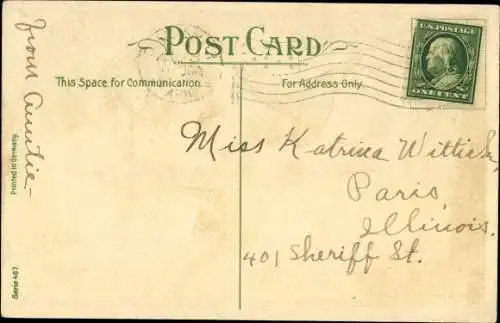 POST CARD
U.S. POSTAGE
ONE CENT
This Space for Communication.
For Address Only.
From Auntie -
Miss Katrina Wittick,
Paris,
Illinois.
401 Sheriff St.
Printed in Germany.
Serie 467.